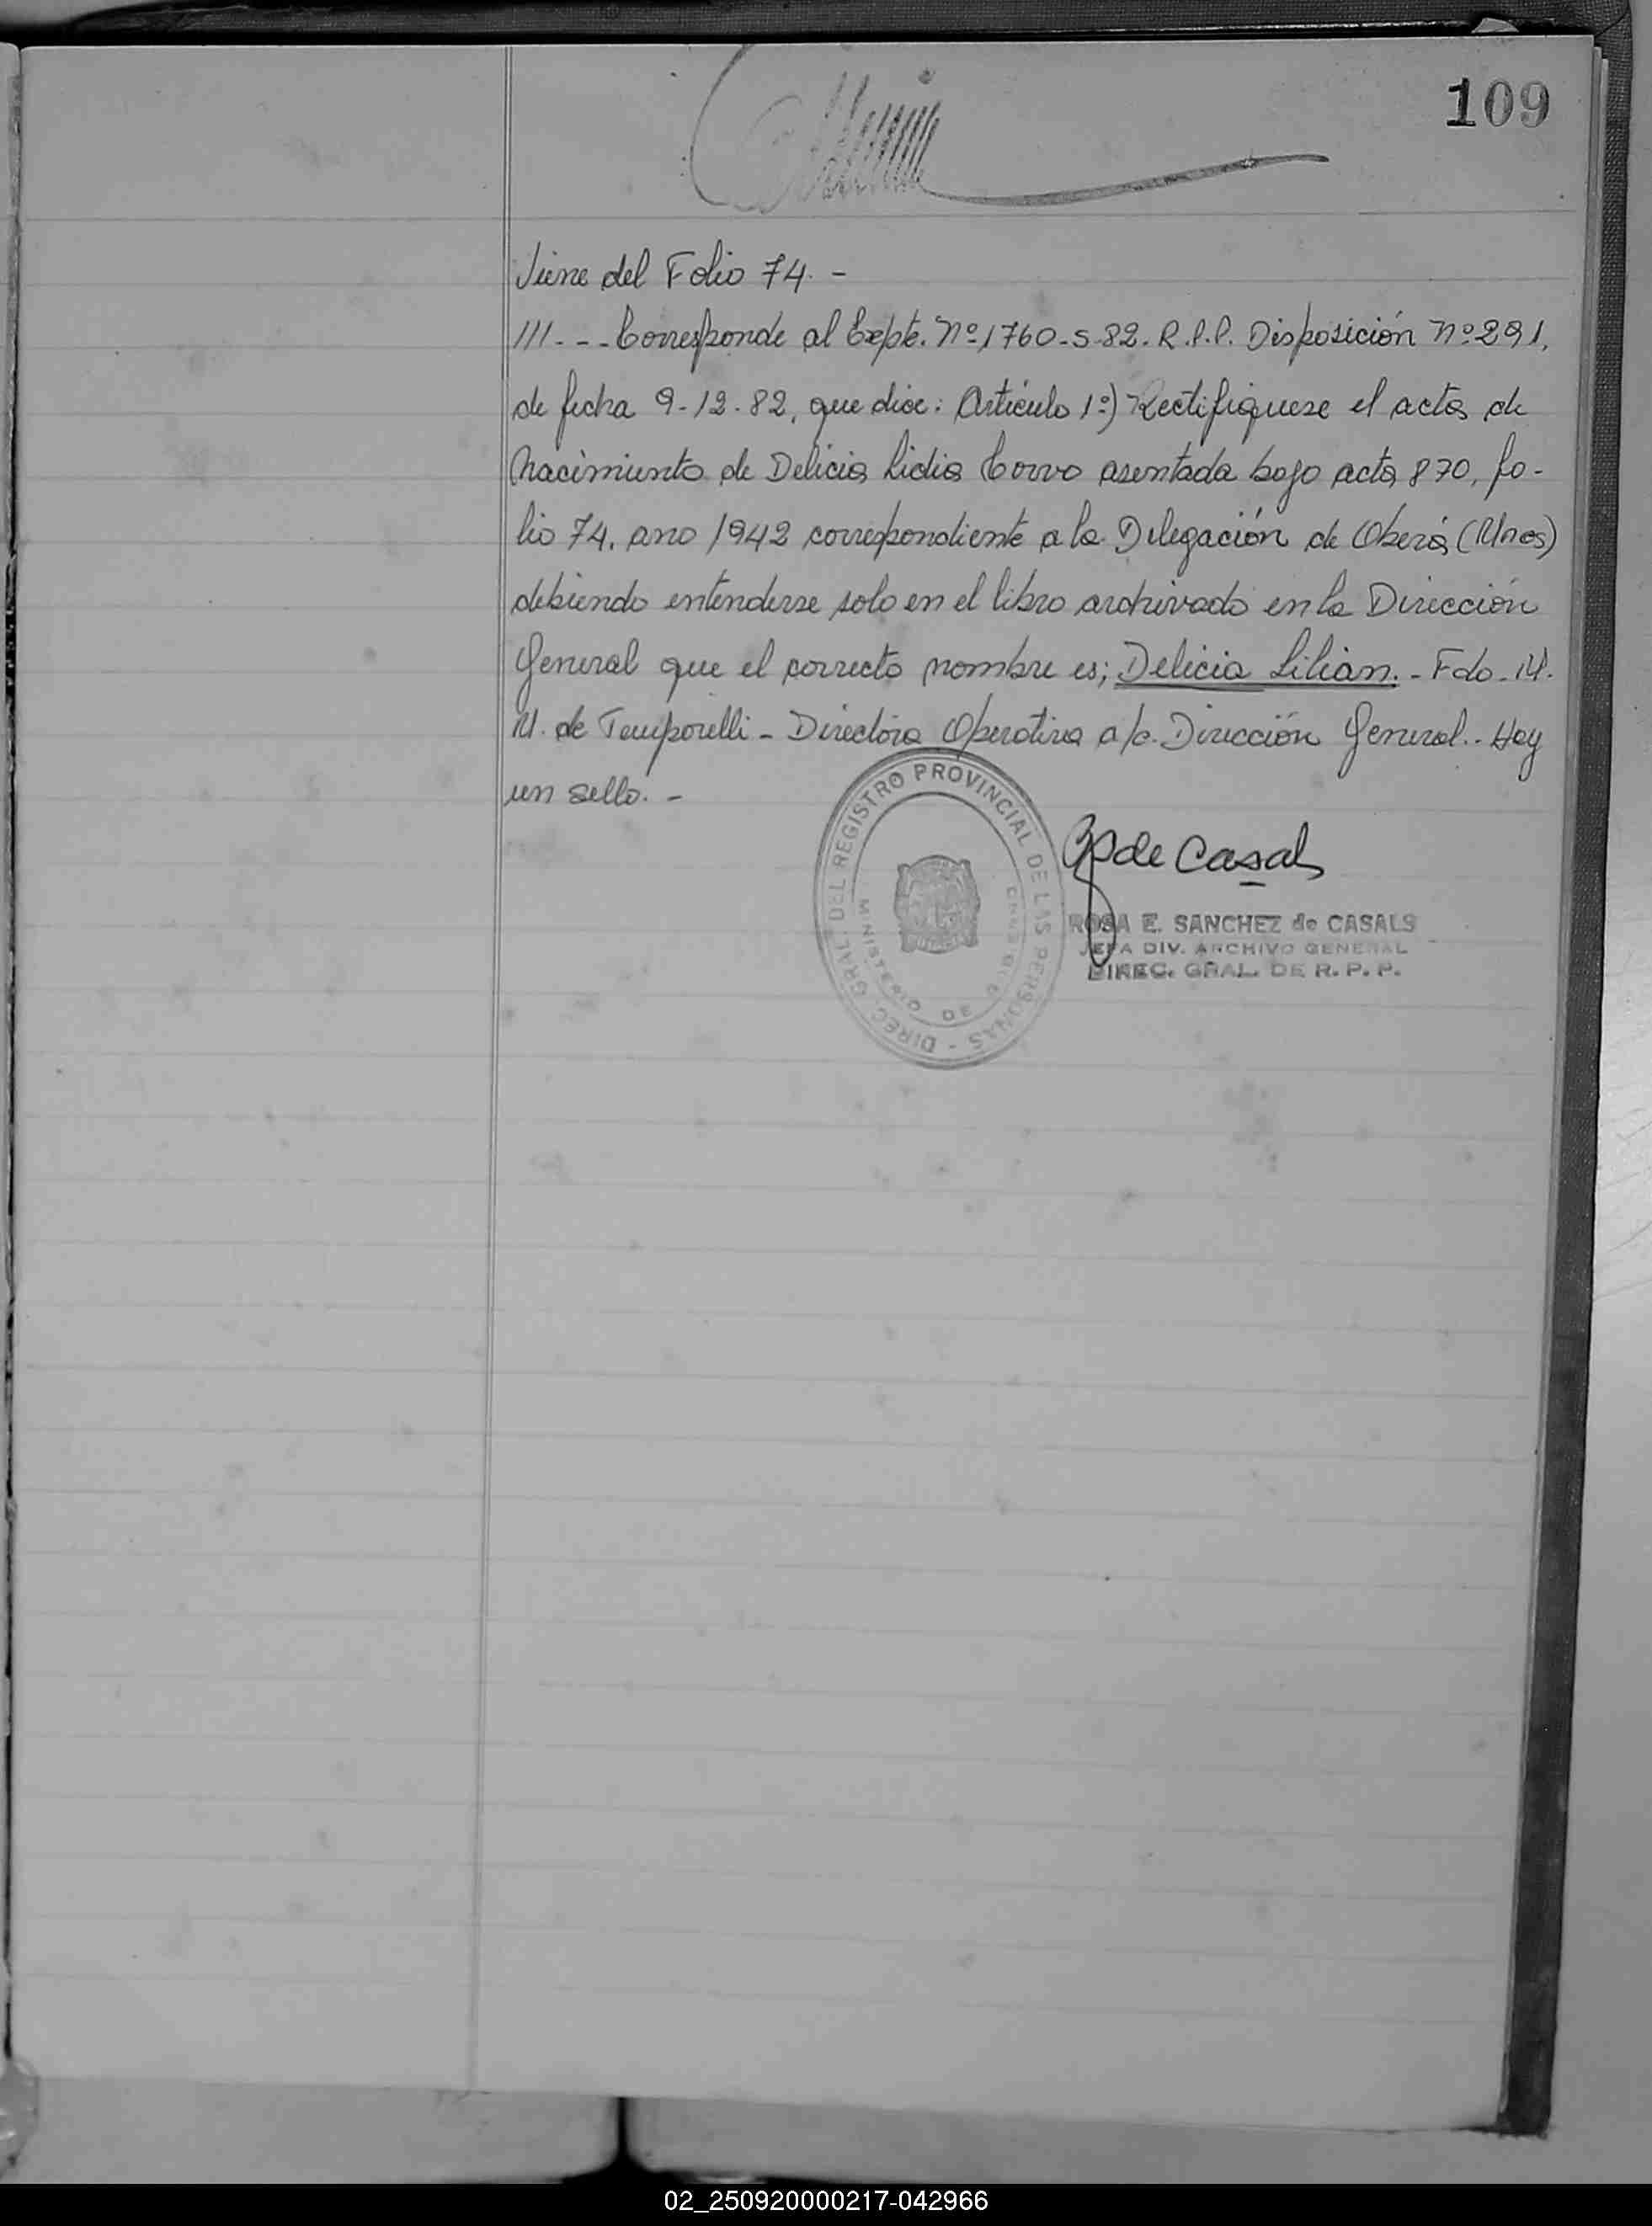 109
Viene del Folio 74. -
///- - - Corresponde al Expte. Nº 1760-S-82. R.P.P. Disposición Nº 291,
de fecha 9-12-82, que dice: Artículo 1º) Rectifíquese el acta de
Nacimiento de Delicia Lidia Corvo asentada bajo acta 870, fo-
lio 74, ano 1942 correspondiente a la Delegación de Oberá (Mnes)
debiendo entenderse solo en el libro archivado en la Dirección
General que el correcto nombre es; Delicia Lilian. - Fdo. M.
M. de Temporelli - Directora Operativa a/c. Dirección General.. Hay
un sello. -
DIREC. GRAL. DEL REGISTRO PROVINCIAL DE LAS PERSONAS -
MINISTERIO DE GOBIERNO
de Casals
ROSA E. SANCHEZ de CASALS
JEFA DIV. ARCHIVO GENERAL
DIREC. GRAL. DE R. P. P.
02_250920000217-042966